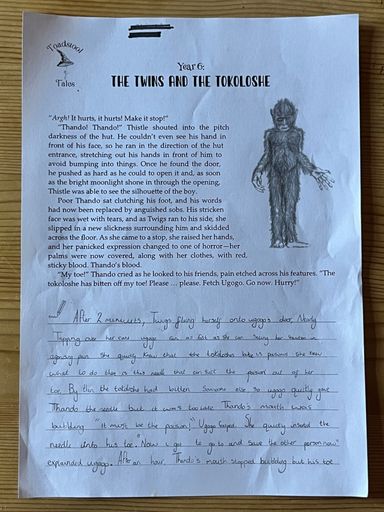 Toadstool
Tales
Year 6:
THE TWINS AND THE TOKOLOSHE
"Argh! It hurts, it hurts! Make it stop!"
"Thando! Thando!" Thistle shouted into the pitch
darkness of the hut. He couldn't even see his hand in
front of his face, so he ran in the direction of the hut
entrance, stretching out his hands in front of him to
avoid bumping into things. Once he found the door,
he pushed as hard as he could to open it and, as soon
as the bright moonlight shone in through the opening,
Thistle was able to see the silhouette of the boy.
Poor Thando sat clutching his foot, and his words
had now been replaced by anguished sobs. His stricken
face was wet with tears, and as Twigs ran to his side, she
slipped in a new slickness surrounding him and skidded
across the floor. As she came to a stop, she raised her hands,
and her panicked expression changed to one of horror—her
palms were now covered, along with her clothes, with red,
sticky blood. Thando's blood.
"My toe!" Thando cried as he looked to his friends, pain etched across his features. "The
tokoloshe has bitten off my toe! Please … please. Fetch Ugogo. Go now. Hurry!"
After 2 minuets, Twigs flung herself onto uggogo's door, Nearly
Tripping over her ugogo ran as fast as she can Seeing her in
agonising pain she quickly knew that the tolidosha bite is poisons she knew
what to do this is the needle that can suck the poison out of her
toe. By then the tolidosha had bitten Someone else so ugogo quickly gave
Thando the needle but it was too late Thando's mouth was
bubbling "It must be the poison!" Uggogo She quickly inserted the
needle into his toe. "Now i go to go to and save the other person now"
explained uggogo. After an hour, Thando's mouth stopped bubbling but his toe